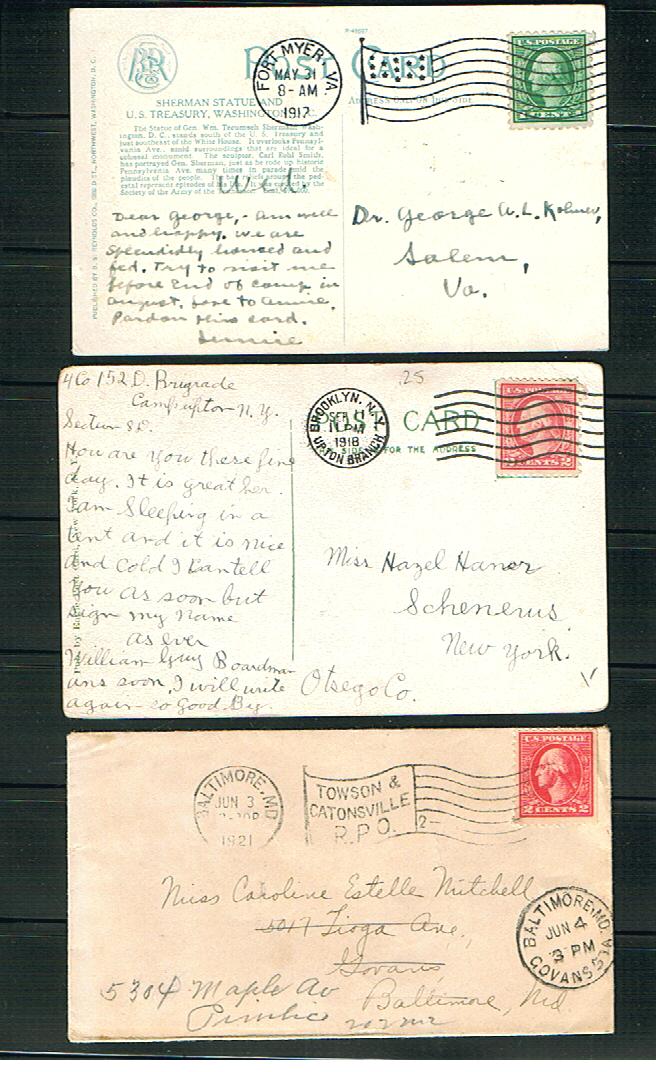 P-45667
POST CARD
ADDRESS ONLY ON THIS SIDE
FORT MYER, VA.
MAY 31
8-AM
1917
U.S. POSTAGE
1 CENT 1
SHERMAN STATUE AND
U. S. TREASURY, WASHINGTON, D. C.
The Statue of Gen. Wm. Tecumseh Sherman Wash-
ington, D. C., stands south of the U. S. Treasury and
just southeast of the White House. It overlooks Pennsyl-
vania Ave., amid surroundings that are ideal for a
colossal monument. The sculptor, Carl Rohl Smith,
has portrayed Gen. Sherman, just as he rode up historic
Pennsylvania Ave. many times in parade amid the
plaudits of the people. The
Society of the Army of the
PUBLISHED BY B. S. REYNOLDS CO., NORTHWEST, WASHINGTON, D. C.
Wed.
Dear George,- Am well
and happy. We are
splendidly housed and
fed. Try to visit me
before end of camp in
august. Love to
Pardon this card.
Dr. George A. L. Kolmer,
Salem,
Va.
4 Co 152 D. Brigrade
Camp upton N.Y.
Section SD.
How are you these fine
day. It is great her.
I am Sleeping in a
tent and it is nice
and cold I Can tell
you as soon but
sign my name
as ever
William Guy Boardman
ans soon, I will write
again - so Good By.
25
BROOKLYN, N.Y.
SEP
PM
1918
UPTON BRANCH
CARD
SIDE FOR THE ADDRESS
U.S. POSTAGE
2 CENTS 2
Miss Hazel Haner
Schenevus
New York.
Otsego Co.
BALTIMORE, MD
JUN 3
1921
TOWSON &
CATONSVILLE
R.P.O.
2
U.S. POSTAGE
2 CENTS 2
Miss Caroline Estelle Mitchell
5017 Tioga Ave,
Govans
5304 Maple Av
Baltimore, Md
Pimlico
BALTIMORE, MD.
JUN 4
3 PM
GOVANS STA.